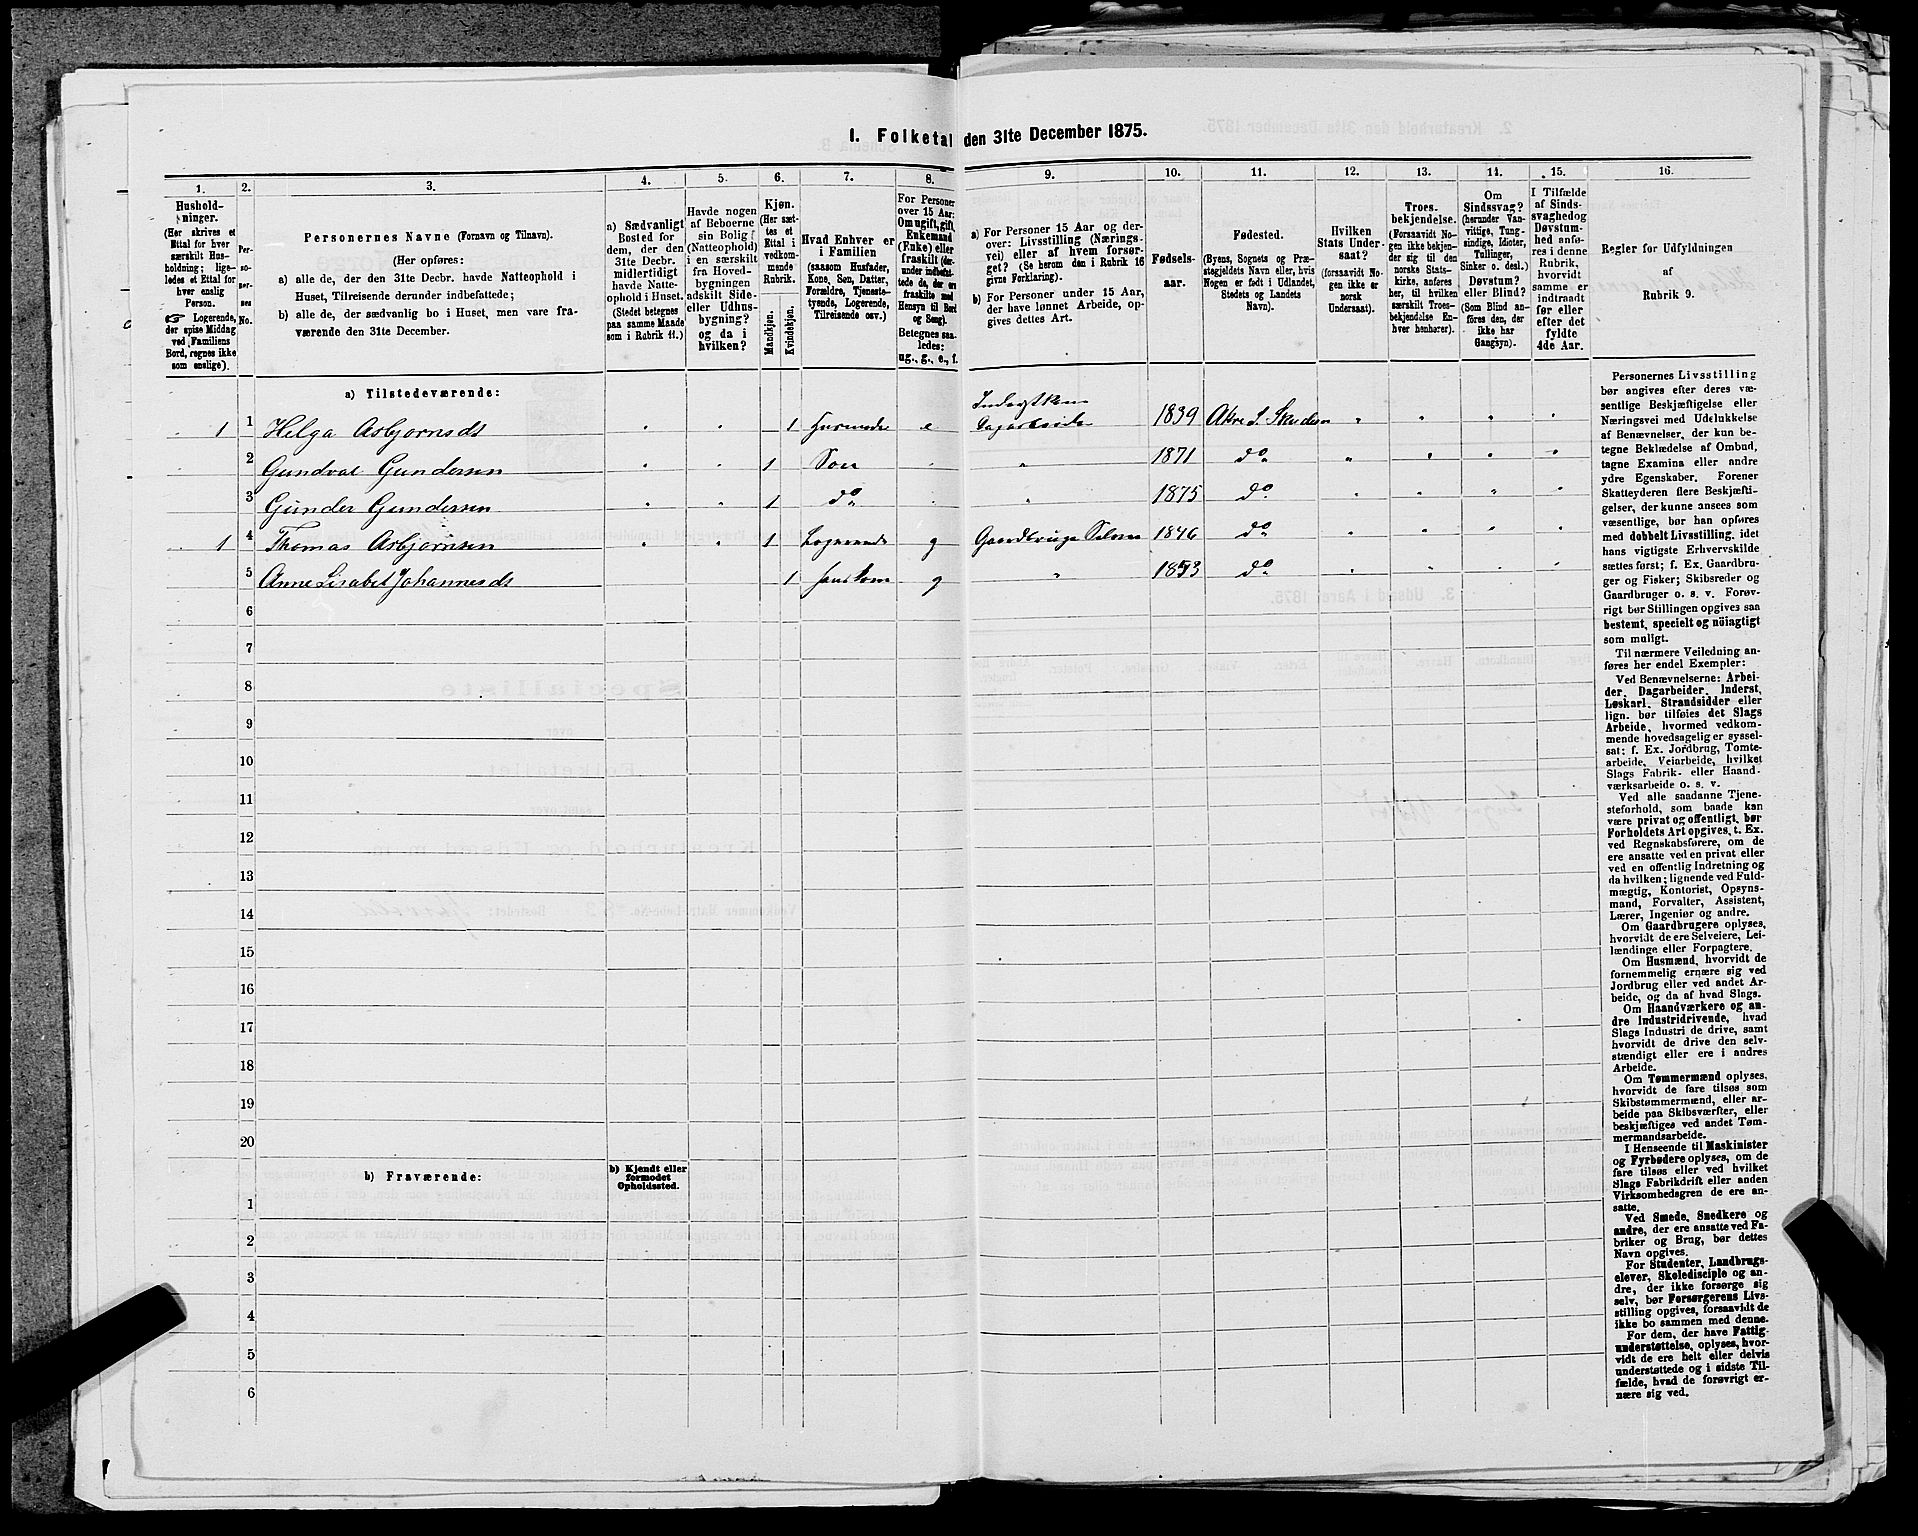 1. Folketal den 31te December 1875.
1. 2. 3. 4. 5. 6. 7. 8. 9. 10. 11. 12. 13. 14. 15. 16.
Hushold-
ninger.
(Her skrives et
Ettal for hver
særskilt Hus-
holdning; lige-
ledes et Ettal for
hver enslig
Person.
☞ Logerende,
der spise Middag
ved Familiens
Bord, regnes ikke
som enslige).
Per-
so-
ner-
ses
No.
Personernes Navne (Fornavn og Tilnavn).
(Her opføres:
a) alle de, der den 31te Decbr. havde Natteophold i
Huset, Tilreisende derunder indbefattede;
b) alle de, der sædvanlig bo i Huset, men vare fra-
værende den 31te December.
a) Sædvanligt
Bosted for
dem, der den
31te Decbr.
midlertidigt
havde Natte-
ophold i Huset.
(Stedet betegnes
paa samme Maade
som i Rubrik 11.)
Havde nogen
af Beboerne
sin Bolig
(Natteophold)
i en særskilt
fra Hoved-
bygningen
adskilt Side-
eller Udhus-
bygning?
og da i
hvilken?
Kjøn.
(Her sæt-
tes et
Ettal i
vedkom-
mende
Rubrik.
Mandkjøn.
Kvindekjøn.
Hvad Enhver er
i Familien
(saasom Husfader,
Kone, Søn, Datter,
Forældre, Tjeneste-
tyende, Logerende,
Tilreisende osv.)
For Personer
over 15 Aar:
Om ugift, gift,
Enkemand
(Enke) eller
fraskilt (der-
under indbefat-
tede de, der ere
fraskilte med
Hensyn til Bord
og Seng).
Betegnes saa-
ledes:
ug., g., e., f.
a) For Personer 15 Aar og der-
over: Livsstilling (Nærings-
vei) eller af hvem forsør-
get? (Se herom den i Rubrik 16
givne Forklaring).
b) For Personer under 15 Aar,
der have lønnet Arbeide, op-
gives dettes Art.
Fødsels-
aar.
Fødested.
(Byens, Sognets og Præ-
stegjeldets Navn eller, hvis
Nogen er født i Udlandet,
Stedets og Landets
Navn).
Hvilken
Stats Under-
saat?
(forsaavidt No-
gen ikke er
norsk
Undersaat).
Troes-
bekjendelse.
(Forsaavidt No-
gen ikke bekjen-
der sig til den
norske Stats-
kirke, anføres
her, til hvilken
særskilt Troes-
bekjendelse En-
hver henhører).
Om
Sindssvag?
(herunder Van-
vittige, Tung-
sindige, Idioter,
Tullinger,
Sinker o. desl.)
Døvstum?
eller Blind?
(Som Blind an-
føres den, der
ikke har
Gangsyn).
I Tilfælde
af Sinds-
svaghed og
Døvstum-
hed anfø-
res i denne
Rubrik,
hvorvidt
samme er
indtraadt
før eller
efter det
fyldte
4de Aar.
Regler for Udfyldningen
af
Rubrik 9.
a) Tilstedeværende:
1 1 Helga Asbjornsdt 1 e 1839
2 Gundval Gundersen 1 Søn 1871 do
3 Gunder Gundersen 1 do 1875 do
1 4 Thomas Asbjornsen 1 Logerende g Gaardbruger 1846 do
5 Anne Lisabet Johannesdt 1 g 1853 do
6
7
8
9
10
11
12
13
14
15
16
17
18
19
20
b) Fraværende:
b) Kjendt eller
formodet
Opholdssted.
1
2
3
4
5
6
Personernes Livsstilling
bør angives efter deres væ-
sentlige Beskjæftigelse eller
Næringsvei med Udelukkelse
af Benævnelser, der kun be-
tegne Beklædelse af Ombud,
tagne Examina eller andre
ydre Egenskaber. Forener
Skatteyderen flere Beskjæfti-
gelser, der kunne ansees som
væsentlige, bør han opføres
med dobbelt Livsstilling, idet
hans vigtigste Erhvervskilde
sættes først; f. Ex. Gaardbru-
ger og Fisker; Skibsreder og
Gaardbruger o. s. v. Forøv-
rigt bør Stillingen opgives saa
bestemt, specielt og nøiagtigt
som muligt.
Til nærmere Veiledning an-
føres her endel Exempler:
Ved Benævnelserne: Arbei-
der, Dagarbeider, Inderst,
Løskarl, Strandsidder eller
lign. bør tilføies det Slags
Arbeide, hvormed vedkom-
mende hovedsagelig er syssel-
sat; f. Ex. Jordbrug, Tomte-
arbeide, Veiarbeide, hvilket
Slags Fabrik- eller Haand-
værksarbeide o. s. v.
Ved alle saadanne Tjene-
steforhold, som baade kan
være privat og offentligt, bør
Forholdets Art opgives, t. Ex.
ved Regnskabsførere, om de
ere ansatte ved en privat eller
ved en offentlig Indretning og
da hvilken; lignende ved Fuld-
mægtig, Kontorist, Opsyns-
mand, Forvalter, Assistent,
Lærer, Ingeniør og andre.
Om Gaardbrugere oplyses,
hvorvidt de ere Selveiere, Lei-
lændinge eller Forpagtere.
Om Husmænd, hvorvidt de
fornemmelig ernære sig ved
Jordbrug eller ved andet Ar-
beide, og da af hvad Slags.
Om Haandværkere og an-
dre Industridrivende, hvad
Slags Industri de drive, samt
hvorvidt de drive den selv-
stændigt eller ere i andres
Arbeide.
Om Tømmermænd oplyses,
hvorvidt de fare tilsøs som
Skibstømmermænd, eller ar-
beide paa Skibsværfter, eller
beskjæftiges ved andet Tøm-
mermandsarbeide.
I Henseende til Maskinister
og Fyrbødere oplyses, om de
fare tilsøs eller ved hvilket
Slags Fabrikdrift eller anden
Virksomhedsgren de ere an-
satte.
Ved Smede, Snedkere og
andre, der ere ansatte ved Fa-
briker og Brug, bør dettes
Navn opgives.
For Studenter, Landbrugs-
elever, Skoledisciple og an-
dre, der ikke forsørge sig
selv, bør Forsørgerens Livs-
stilling opgives, forsaavidt de
ikke bo sammen med denne.
For dem, der have Fattig-
understøttelse, oplyses, hvor-
vidt de ere helt eller delvis
understøttede og i sidste Til-
fælde, hvad de forøvrigt er-
nære sig ved.